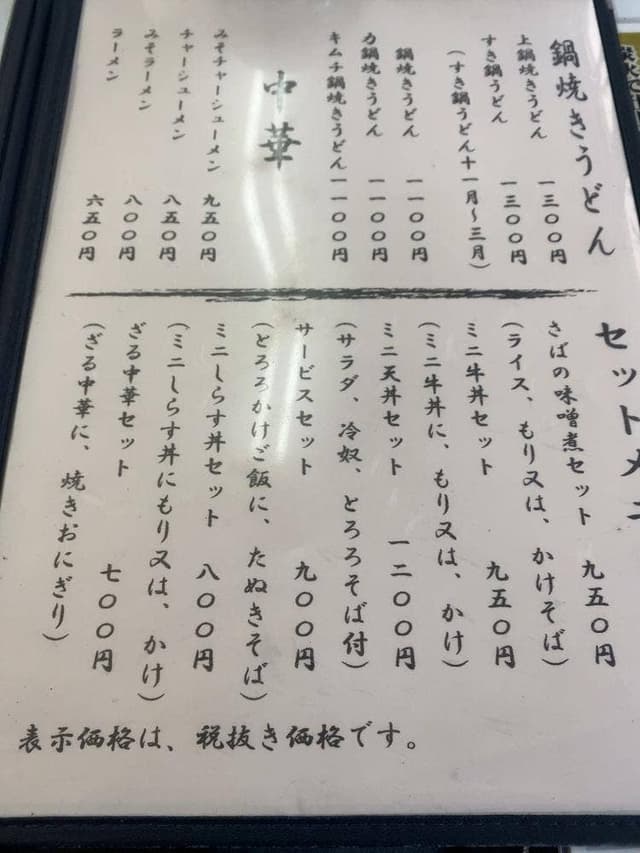 鍋焼きうどん
上鍋焼きうどん 一三〇〇円
すき鍋うどん 一三〇〇円
(すき鍋うどん十一月〜三月)
鍋焼きうどん 一一〇〇円
力鍋焼きうどん 一一〇〇円
キムチ鍋焼きうどん 一一〇〇円
中華
みそチャーシューメン 九五〇円
チャーシューメン 八五〇円
みそラーメン 八〇〇円
ラーメン 六五〇円
セットメニ
さばの味噌煮セット 九五〇円
(ライス、もり又は、かけそば)
ミニ牛丼セット 九五〇円
(ミニ牛丼に、もり又は、かけ)
ミニ天丼セット 一二〇〇円
(サラダ、冷奴、とろろそば付)
サービスセット 九〇〇円
(とろろかけご飯に、たぬきそば)
ミニしらす丼セット 八〇〇円
(ミニしらす丼にもり又は、かけ)
ざる中華セット 七〇〇円
(ざる中華に、焼きおにぎり)
表示価格は、税抜き価格です。